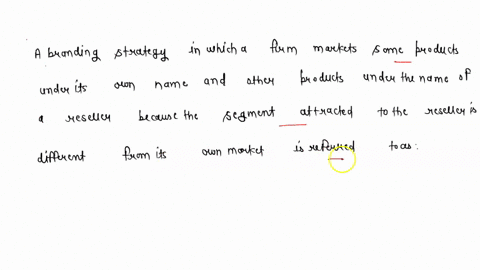 A branding strategy in which a firm markets some products
under its own name and other products under the name of
a reseller because the segment attracted to the reseller is
different from its own market is referred to as: